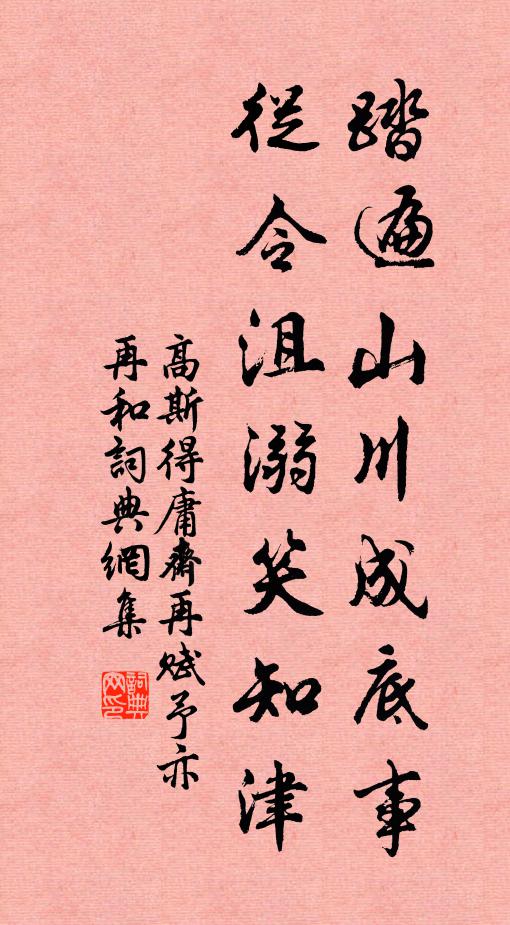 踏遍山川成底事
從今沮溺笑知津
高斯得庸齋再賦予亦
再和詞典網集
詞典
网印